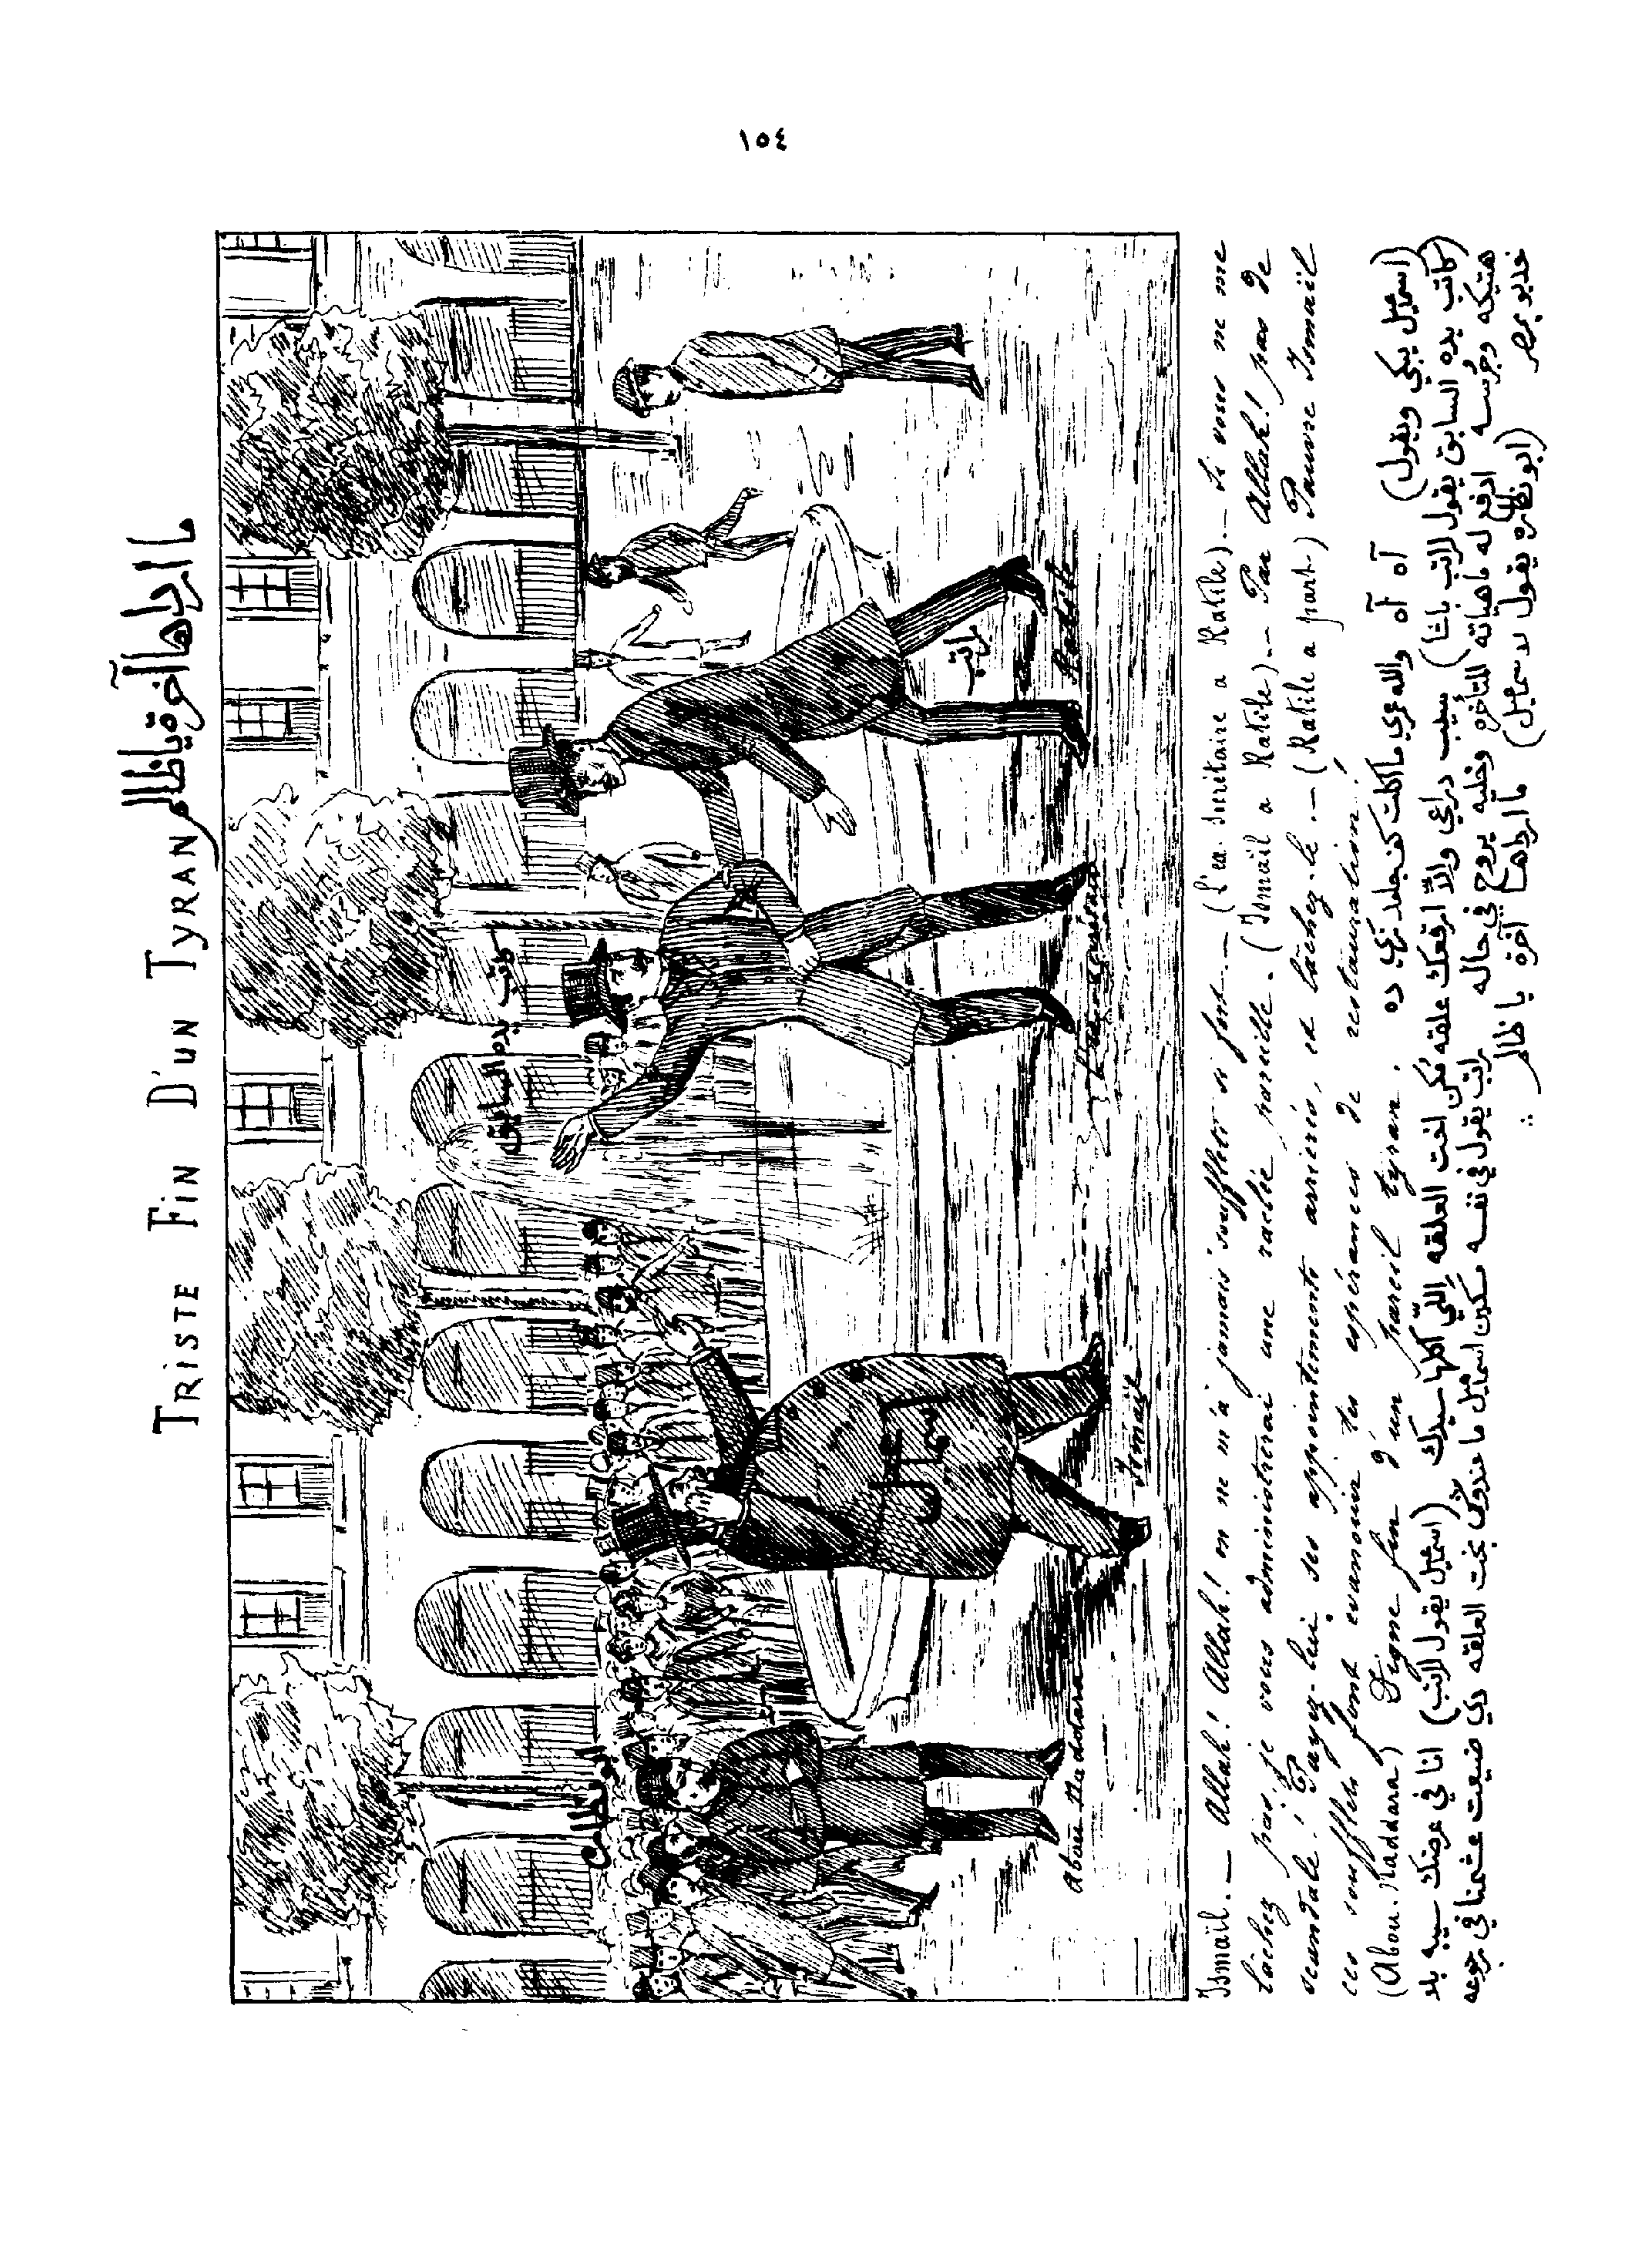 ١٥٤
TRISTE FIN D'UN TYRAN ما ارداها آخرة يا ظالم
كاتب يده السابق
راتب
Ratib
اسماعيل
Ismaïl
Abou Naddara
Ismaïl. — Allah! Allah! on ne m'a jamais souffleté si fort. — (L'ex. Secrétaire a Ratib). — Si vous ne me
lâchez pas je vous administrerai une raclée pareille. (Ismaïl a Ratib). — Par Allah! pas de
scandale! Payez-lui ses appointements arriérés, et lâchez-le. — (Ratib a part) Pauvre Ismaïl
ces soufflets font evanouir tes espérances de restauration!
(Abou. Naddara) Digne fin d'un pareil tyran.
(اسماعيل يبكي ويقول) آه آه والله عمري ما اكلت كف جامد زي ده
(كاتب يده السابق يقول لراتب باشا) سيب دراعي والّا ارقعك علقه تمكن اخت العلقه اللّي اكلها سيدك (اسماعيل يقول لراتب) انا في عرضك سيبه بلا
هتيكه وجرسه ادفع له ماهياته المتأخره وخليه يروح في حاله راتب يقول في نفسه مسكين اسماعيل ما عندوش بخت العلقه دي ضيعت عشمنا في رجوعه
خديو بمصر (ابو نظاره يقول لاسماعيل) ما ارداها آخرة يا ظالم